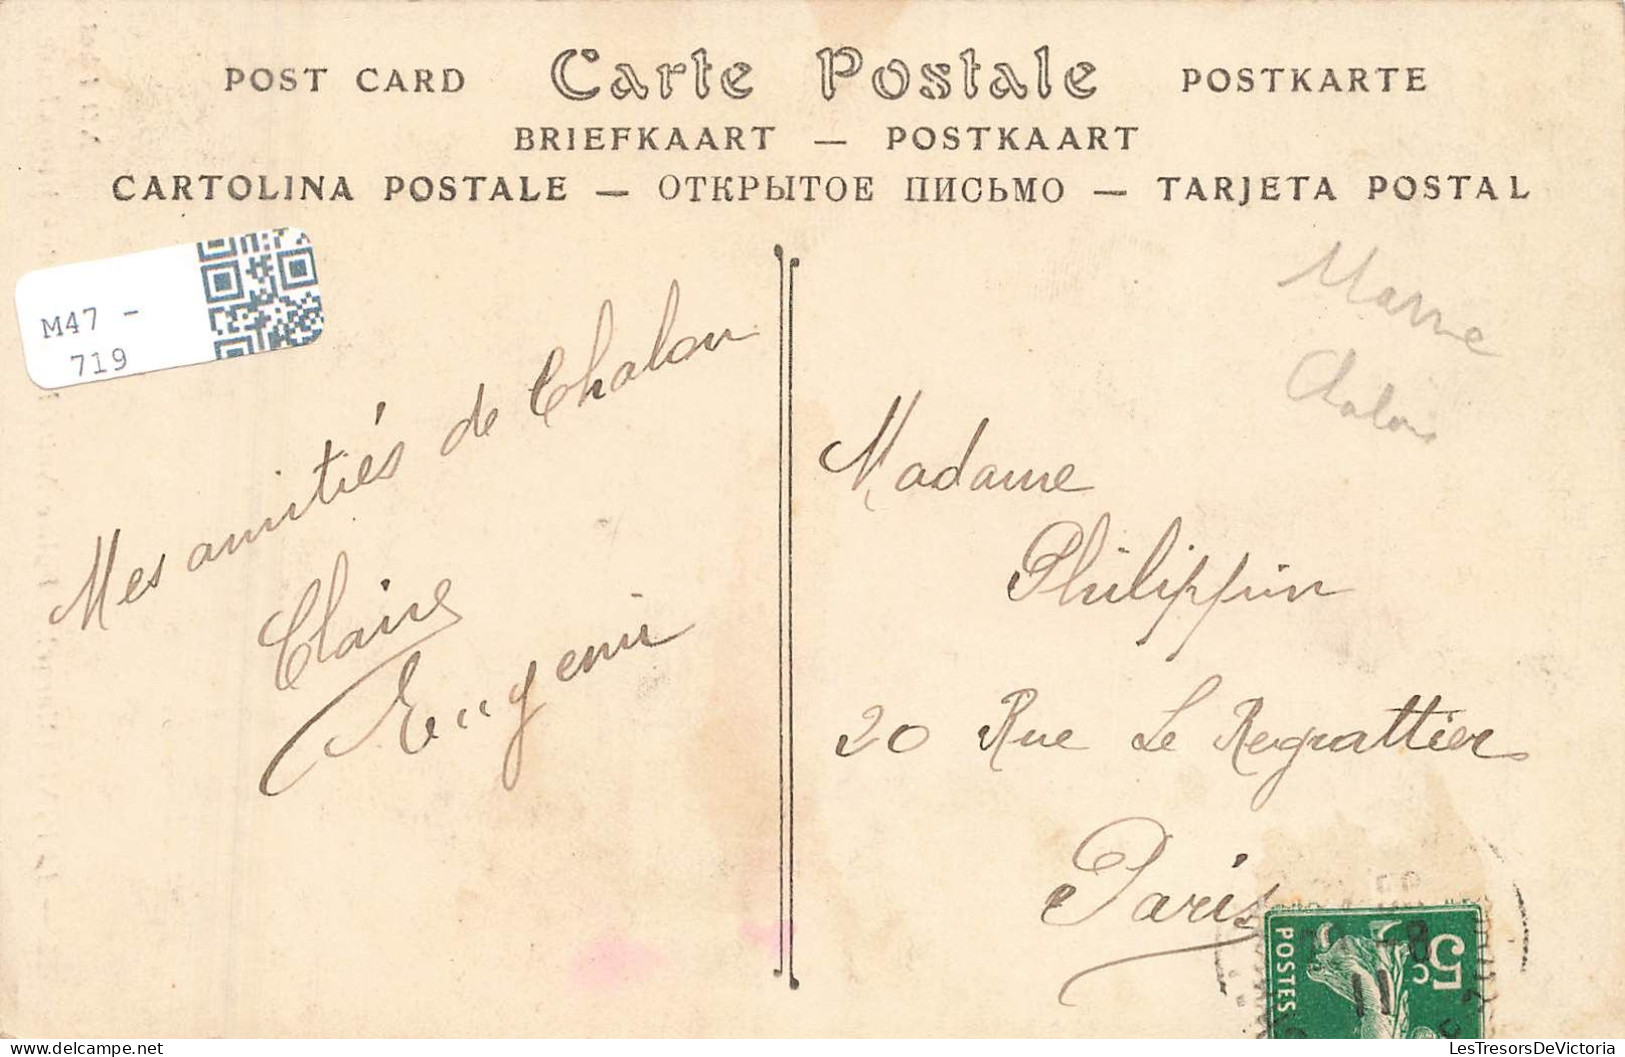 POST CARD Carte Postale POSTKARTE
BRIEFKAART — POSTKAART
CARTOLINA POSTALE — ОТКРЫТОЕ ПИСЬМО — TARJETA POSTAL
M47 -
719
Mes amitiés de Chalon
Claire
Eugenie
Marne
Chalons
Madame
Philippin
20 Rue Le Regrattier
Paris
POSTES
5c
11
LesTresorsDeVictoria
delcampe.net